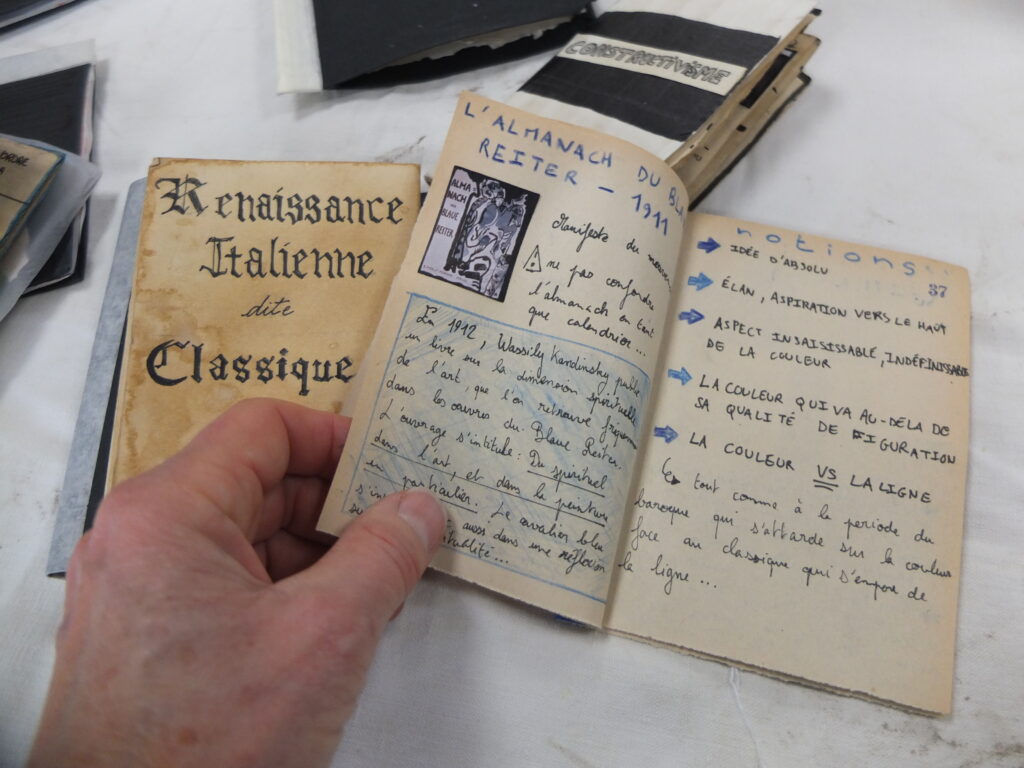 CONSTRUCTIVISME
ORDRE
Renaissance
Italienne
dite
Classique
L'ALMANACH DU
REITER - 1911
ALMA
NACH
BLAUE
REITER
Manifeste du
⚠ ne pas confondre
l'almanach en tant
que calendrier...
En 1912, Wassily Kandinsky publie
un livre sur la dimension spirituelle
de l'art, que l'on retrouve fréquemment
dans les oeuvres du Blaue Reiter.
L'ouvrage s'intitule : Du spirituel
dans l'art, et dans la peinture
en particulier. Le cavalier bleu
aussi dans une réflexion
notions :
37
IDÉE D'ABSOLU
ÉLAN, ASPIRATION VERS LE HAUT
ASPECT INSAISISSABLE, INDÉFINISSABLE
DE LA COULEUR
LA COULEUR QUI VA AU-DELÀ DE
SA QUALITÉ DE FIGURATION
LA COULEUR VS LA LIGNE
tout comme à la periode du
baroque qui s'attarde sur la couleur
face au classique qui s'empare de
la ligne...